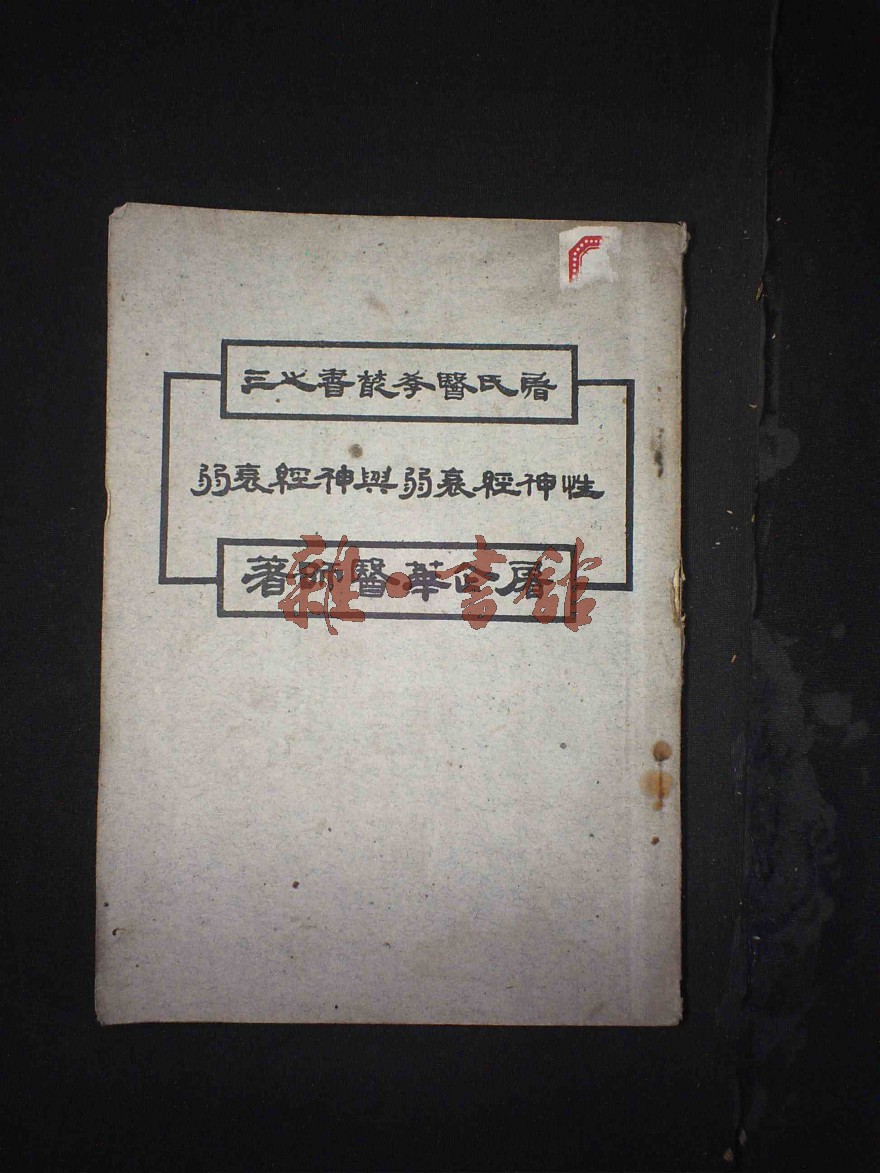 屠氏醫學叢書之三
性神經衰弱與神經衰弱
屠企華醫師著
雜·書館